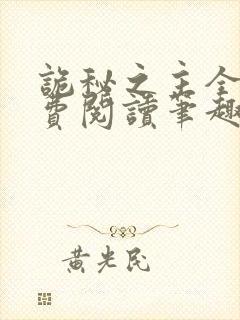 詭秘之主全
費閱讀筆趣
黃光民